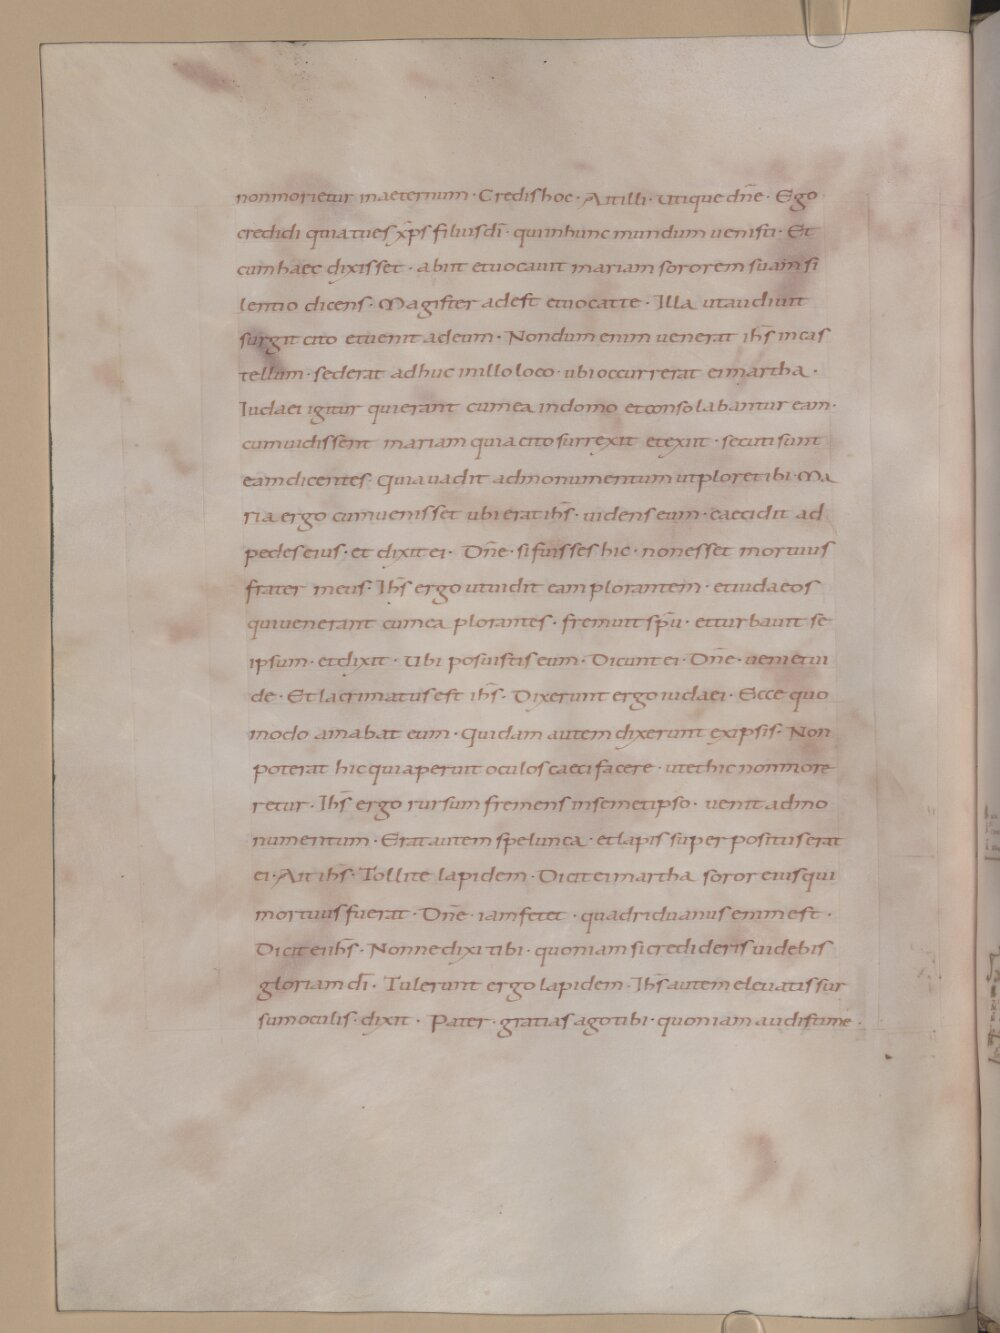 non morietur in aeternum · Credis hoc · Ait illi · Utique dn̄e · Ego
credidi quia tu es xp̄s filius dī · qui in hunc mundum uenisti · Et
cum haec dixisset · abiit et uocauit mariam sororem suam si
lentio dicens · Magister adest et uocat te · Illa ut audiuit
surgit cito et uenit ad eum · Nondum enim uenerat ih̄s in cas
tellum · sed erat adhuc in illo loco · ubi occurrerat ei martha ·
Iudaei igitur qui erant cum ea in domo et consolabantur eam ·
cum uidissent mariam quia cito surrexit et exiit · secuti sunt
eam dicentes · Quia uadit ad monumentum ut ploret ibi · Ma
ria ergo cum uenisset ubi erat ih̄s · uidens eum · caecidit ad
pedes eius · et dixit ei · Dn̄e · si fuisses hic · non esset mortuus
frater meus · Ih̄s ergo ut uidit eam plorantem · et iudaeos
qui uenerant cum ea plorantes · fremuit sp̄u · et turbauit se
ipsum · et dixit · Ubi posuistis eum · Dicunt ei · Dn̄e · ueni et ui
de · Et lacrimatus est ih̄s · Dixerunt ergo iudaei · Ecce quo
modo amabat eum · Quidam autem dixerunt ex ipsis · Non
poterat hic qui aperuit oculos caeci facere · ut et hic non more
retur · Ih̄s ergo rursum fremens in semetipso · uenit ad mo
numentum · Erat autem spelunca · et lapis super positus erat
ei · Ait ih̄s · Tollite lapidem · Dicit ei martha soror eius qui
mortuus fuerat · Dn̄e · iam fetet · quadriduanus enim est ·
Dicit ei ih̄s · Nonne dixi tibi · quoniam si credideris uidebis
gloriam dī · Tulerunt ergo lapidem · Ih̄s autem eleuatis sur
sum oculis · dixit · Pater · gratias ago tibi · quoniam audisti me ·